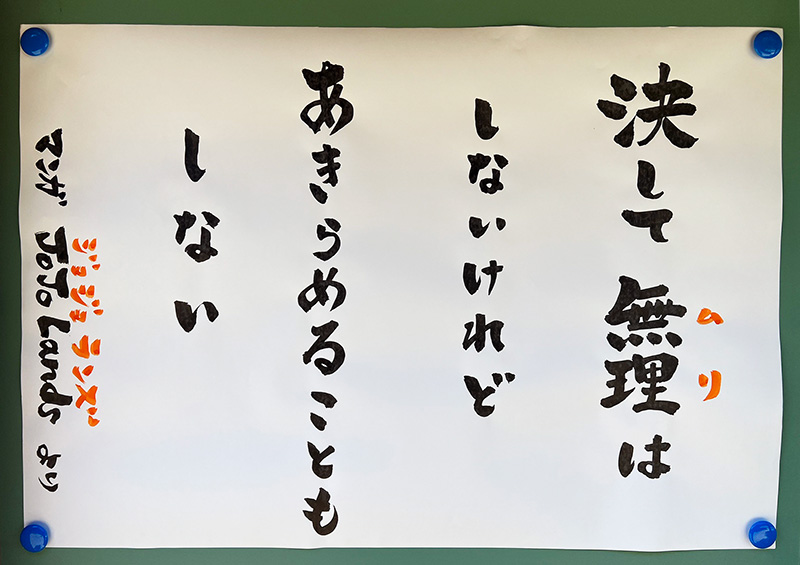 決して無理は
ムリ
しないけれど
あきらめることも
しない
ジョジョランズ
マンガ JOJO Lands より